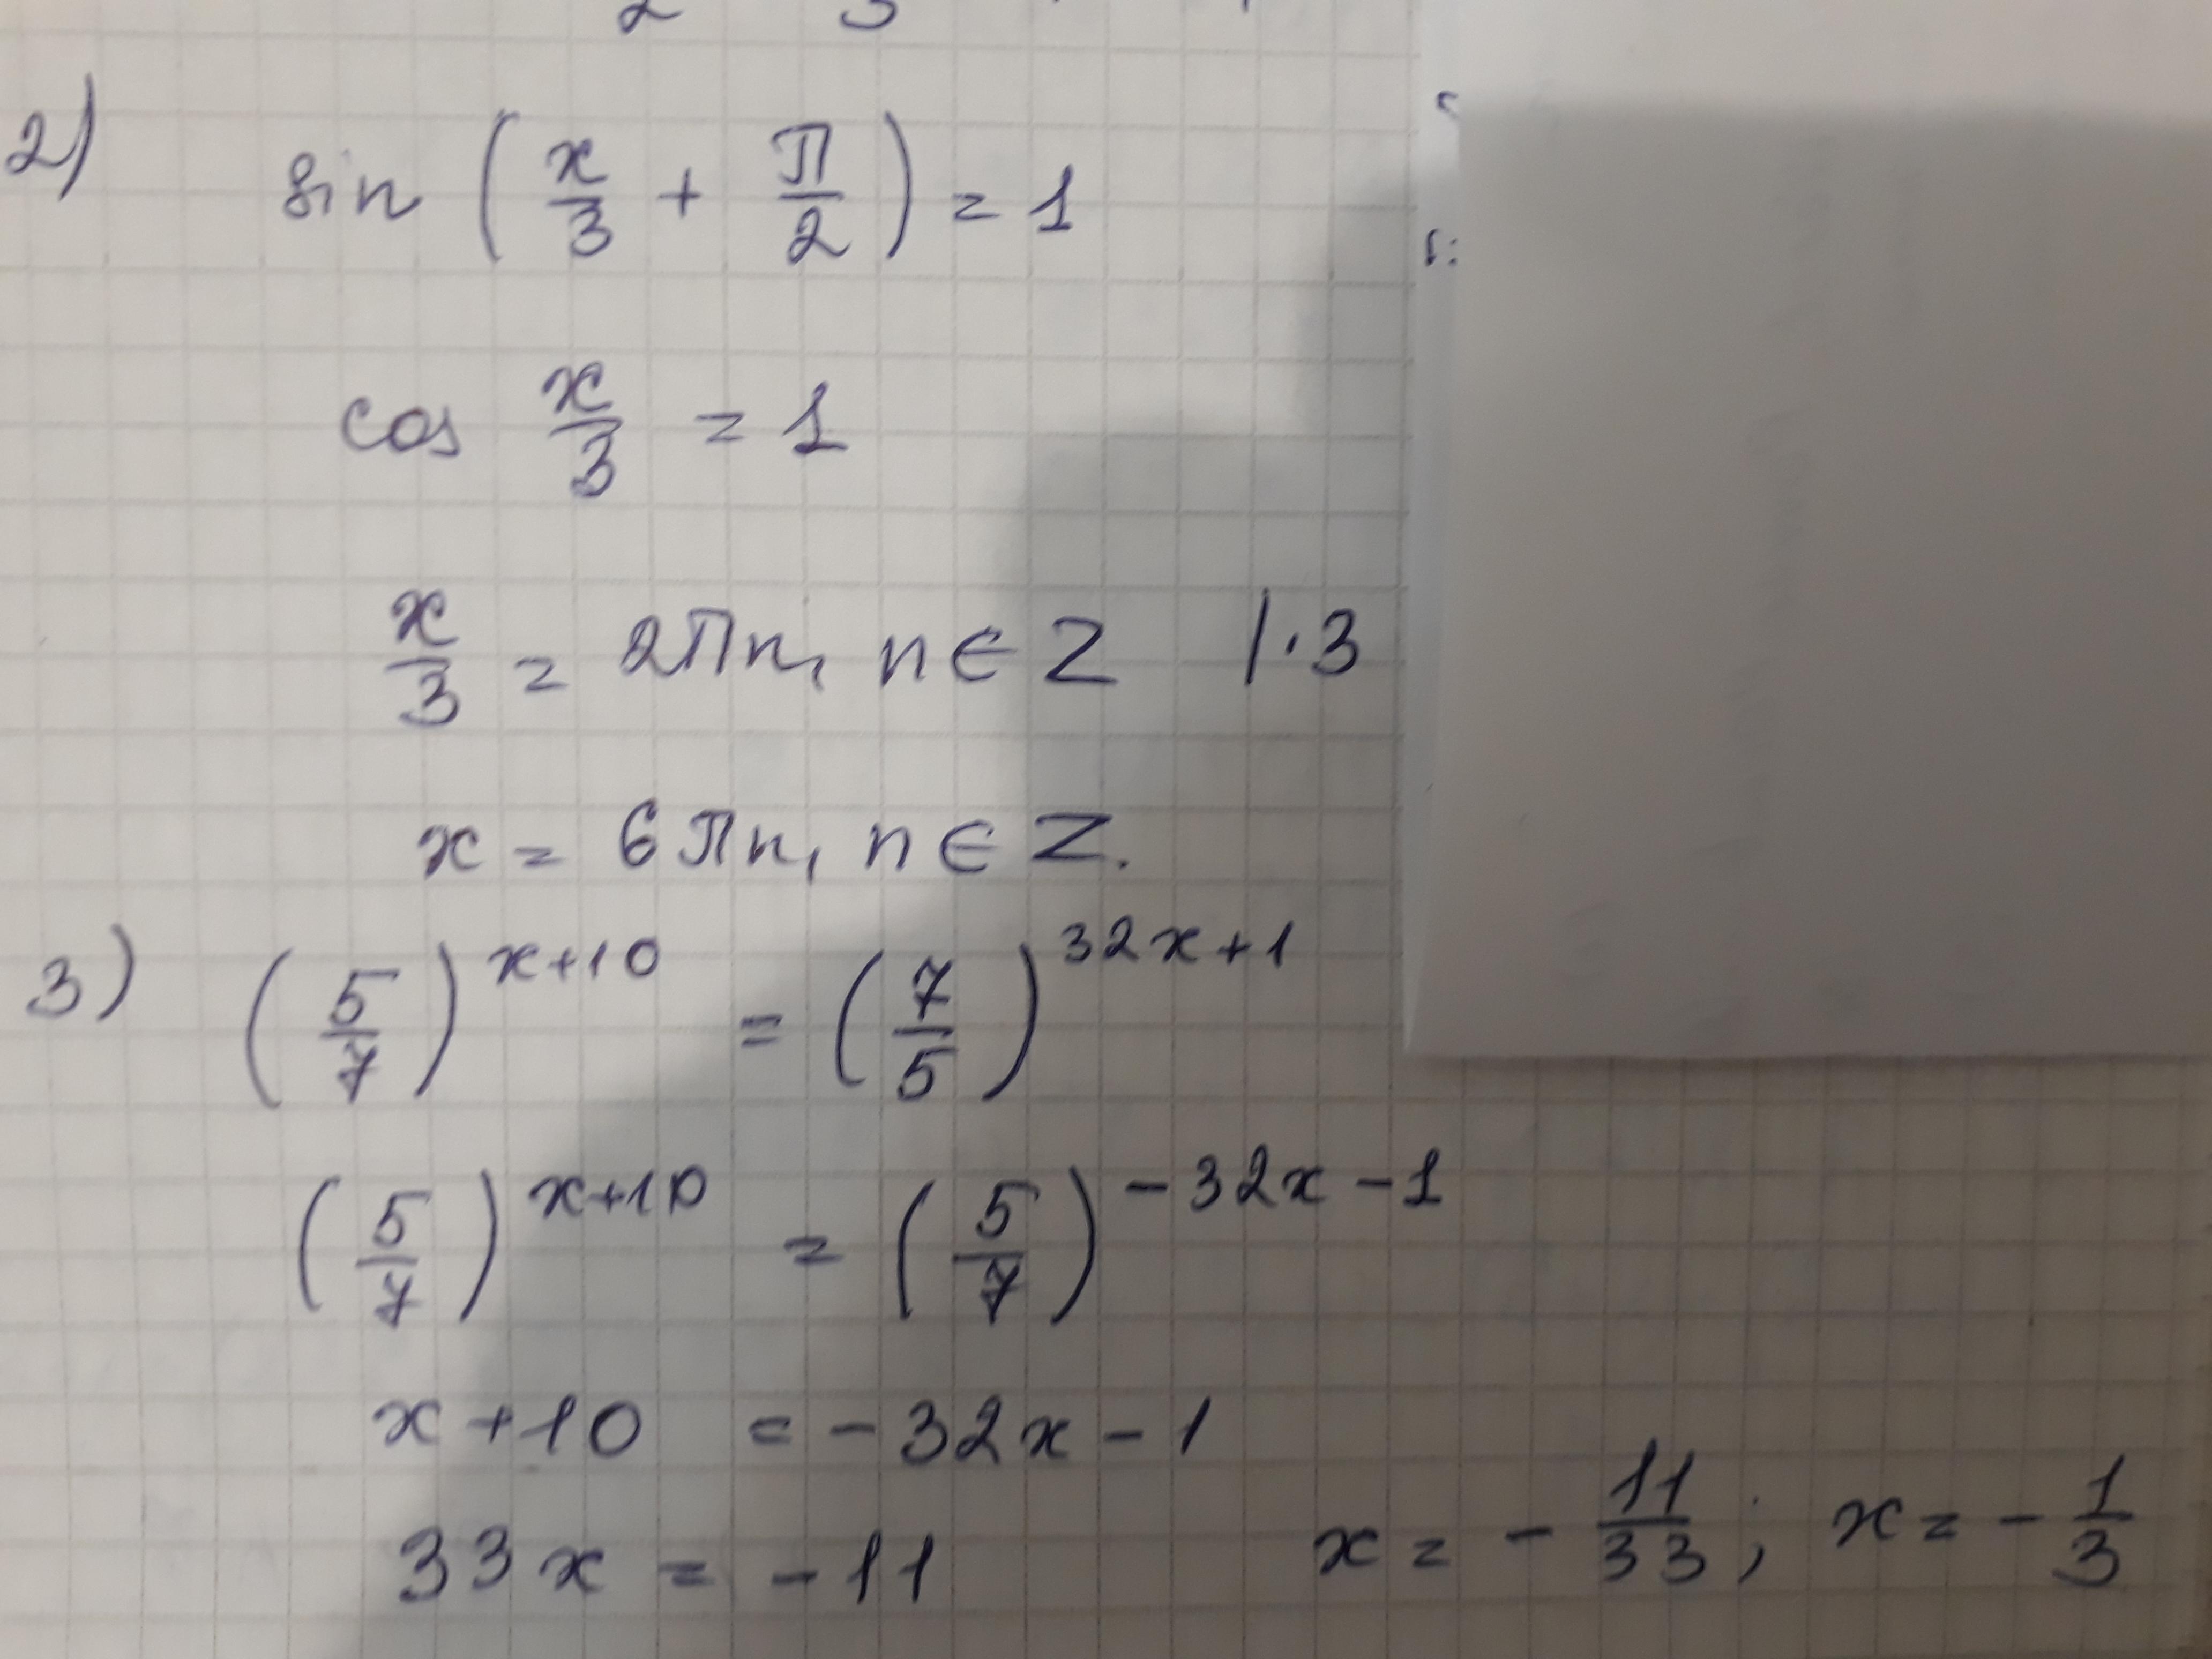 2) sin (x/3 + π/2) = 1
cos x/3 = 1
x/3 = 2πn, n ∈ Z |·3
x = 6πn, n ∈ Z.
3) (5/7)^(x+10) = (7/5)^(32x+1)
(5/7)^(x+10) = (5/7)^(-32x-1)
x+10 = -32x-1
33x = -11 x = -11/33; x = -1/3